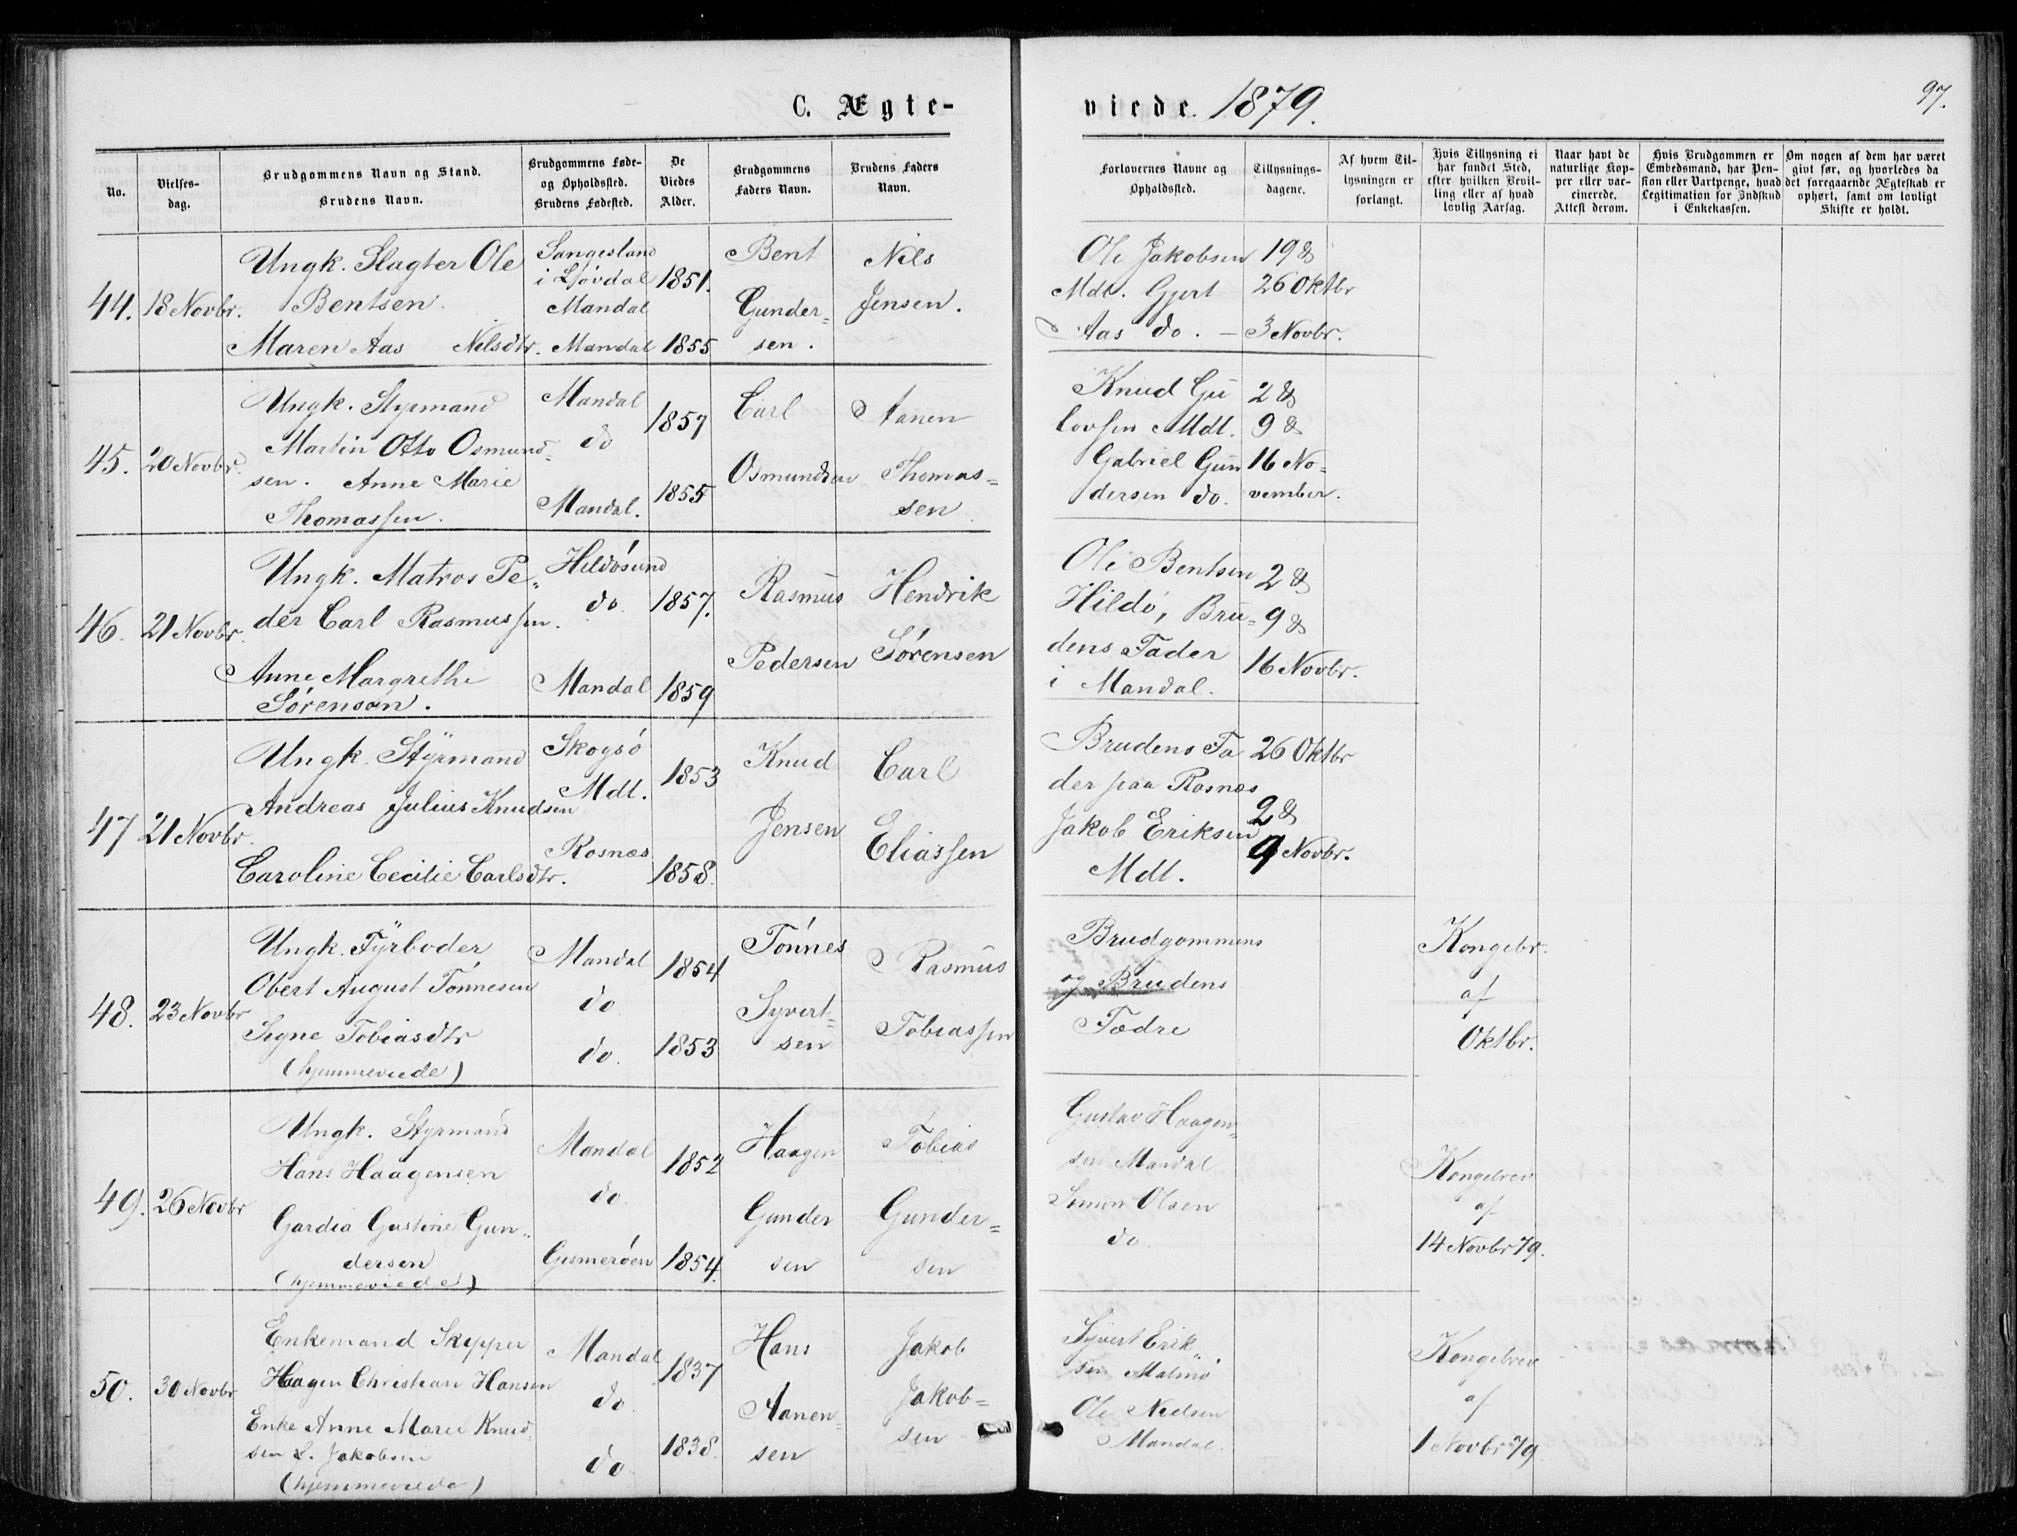 C. Ægte-
viede. 1879.
97.
No.
Vielses-
dag.
Brudgommens Navn og Stand.
Brudens Navn.
Brudgommens Føde-
og Opholdssted.
Brudens Fødested.
De
Viedes
Alder.
Brudgommens
Faders Navn.
Brudens Faders
Navn.
Forlovernes Navne og
Opholdssted.
Tillysnings-
dagene.
Af hvem Til-
lysningen er
forlangt.
Hvis Tillysning ei
har fundet Sted,
efter hvilken Bevil-
ling eller af hvad
lovlig Aarsag.
Naar havt de
naturlige Kop-
per eller vac-
cinerede.
Attest derom.
Hvis Brudgommen er
Embedsmand, har Pen-
sion eller Vartpenge, hvad
Legitimation for Indskud
i Enkekassen.
Om nogen af dem har været
givt før, og hvorledes da
det foregaaende Ægteskab er
ophørt, samt om lovligt
Skifte er holdt.
44.
18 Novbr.
Ungk. Slagter Ole
Bentsen.
Maren Aas Nilsdtr.
i Løvdal
Mandal
Mandal
1851.
1855
Bent
Gunder-
sen.
Nils
Jensen.
Ole Jakobsen
Mdl. Gjert
Aas do. –
19 &
26 Oktbr
3 Novbr.
45.
20 Novbr.
Ungk. Styrmand
Martin Otto Osmund-
sen. Anne Marie
Thomassen.
Mandal
do
Mandal.
1857
1855
Carl
Osmundsen
Aanen
Thomas-
sen
Knud Gu
lovsen Mdl.
Gabriel Gun
dersen do.
2 &
9 &
16 No-
vember.
46.
21 Novbr.
Ungk. Matros Pe-
der Carl Rasmussen.
Anne Margrethe
Sørensen.
Hildøsund
do.
Mandal
1857.
1859
Rasmus
Pedersen
Hendrik
Sørensen
Ole Bentsen
Hildø, Bru-
dens Fader
i Mandal.
2 &
9 &
16 Novbr.
47
21 Novbr.
Ungk. Styrmand
Andreas Julius Knudsen
Caroline Cecilie Carlsdtr.
Skogsø
Mdl.
Rosnæs
1853
1858.
Knud
Jensen
Carl
Eliassen
Brudens Fa
der paa Rosnæs
Jakob Eriksen
Mdl.
26 Oktbr
2 &
9 Novbr.
48.
23 Novbr
Ungk. Fyrbøder
Obert August Tønnesen
Signe Tobiasdtr
(hjemmeviede)
Mandal
do
do.
1854
1853
Tønnes
Syvert-
sen
Rasmus
Tobiassen
Brudgommens
og Brudens
Fædre
Kongebr.
af
Oktbr.
49.
26 Novbr
Ungk. Styrmand
Hans Haagensen
Gardia Gustine Gun-
dersen
(hjemmeviede)
Mandal
do.
Gismerøen
1852
1854.
Haagen
Gunder
sen
Tobias
Gunder-
sen
Gustav Haagen-
sen Mandal
Simon Olsen
do.
Kongebrev
af
14 Novbr 79.
50.
30 Novbr
Enkemand Skipper
Haagen Christian Hansen
Enke Anne Marie Knud-
sen f. Jakobsen
(hjemmeviede)
Mandal
do.
do.
1837
1838.
Hans
Aanen-
sen
Jakob
Jakob-
sen
Syvert Erik-
sen Malmø
Ole Nielsen
Mandal.
Kongebrev
af
1 Novbr 79.